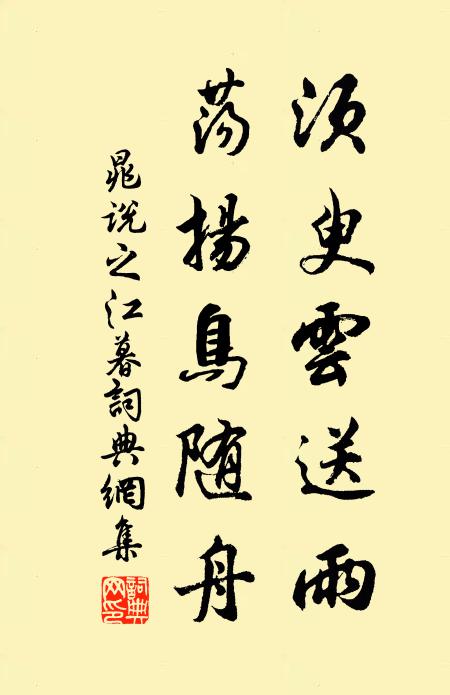 須臾雲送雨
蕩揚鳥随舟
晁説之江暮詞典網集
詞典網印